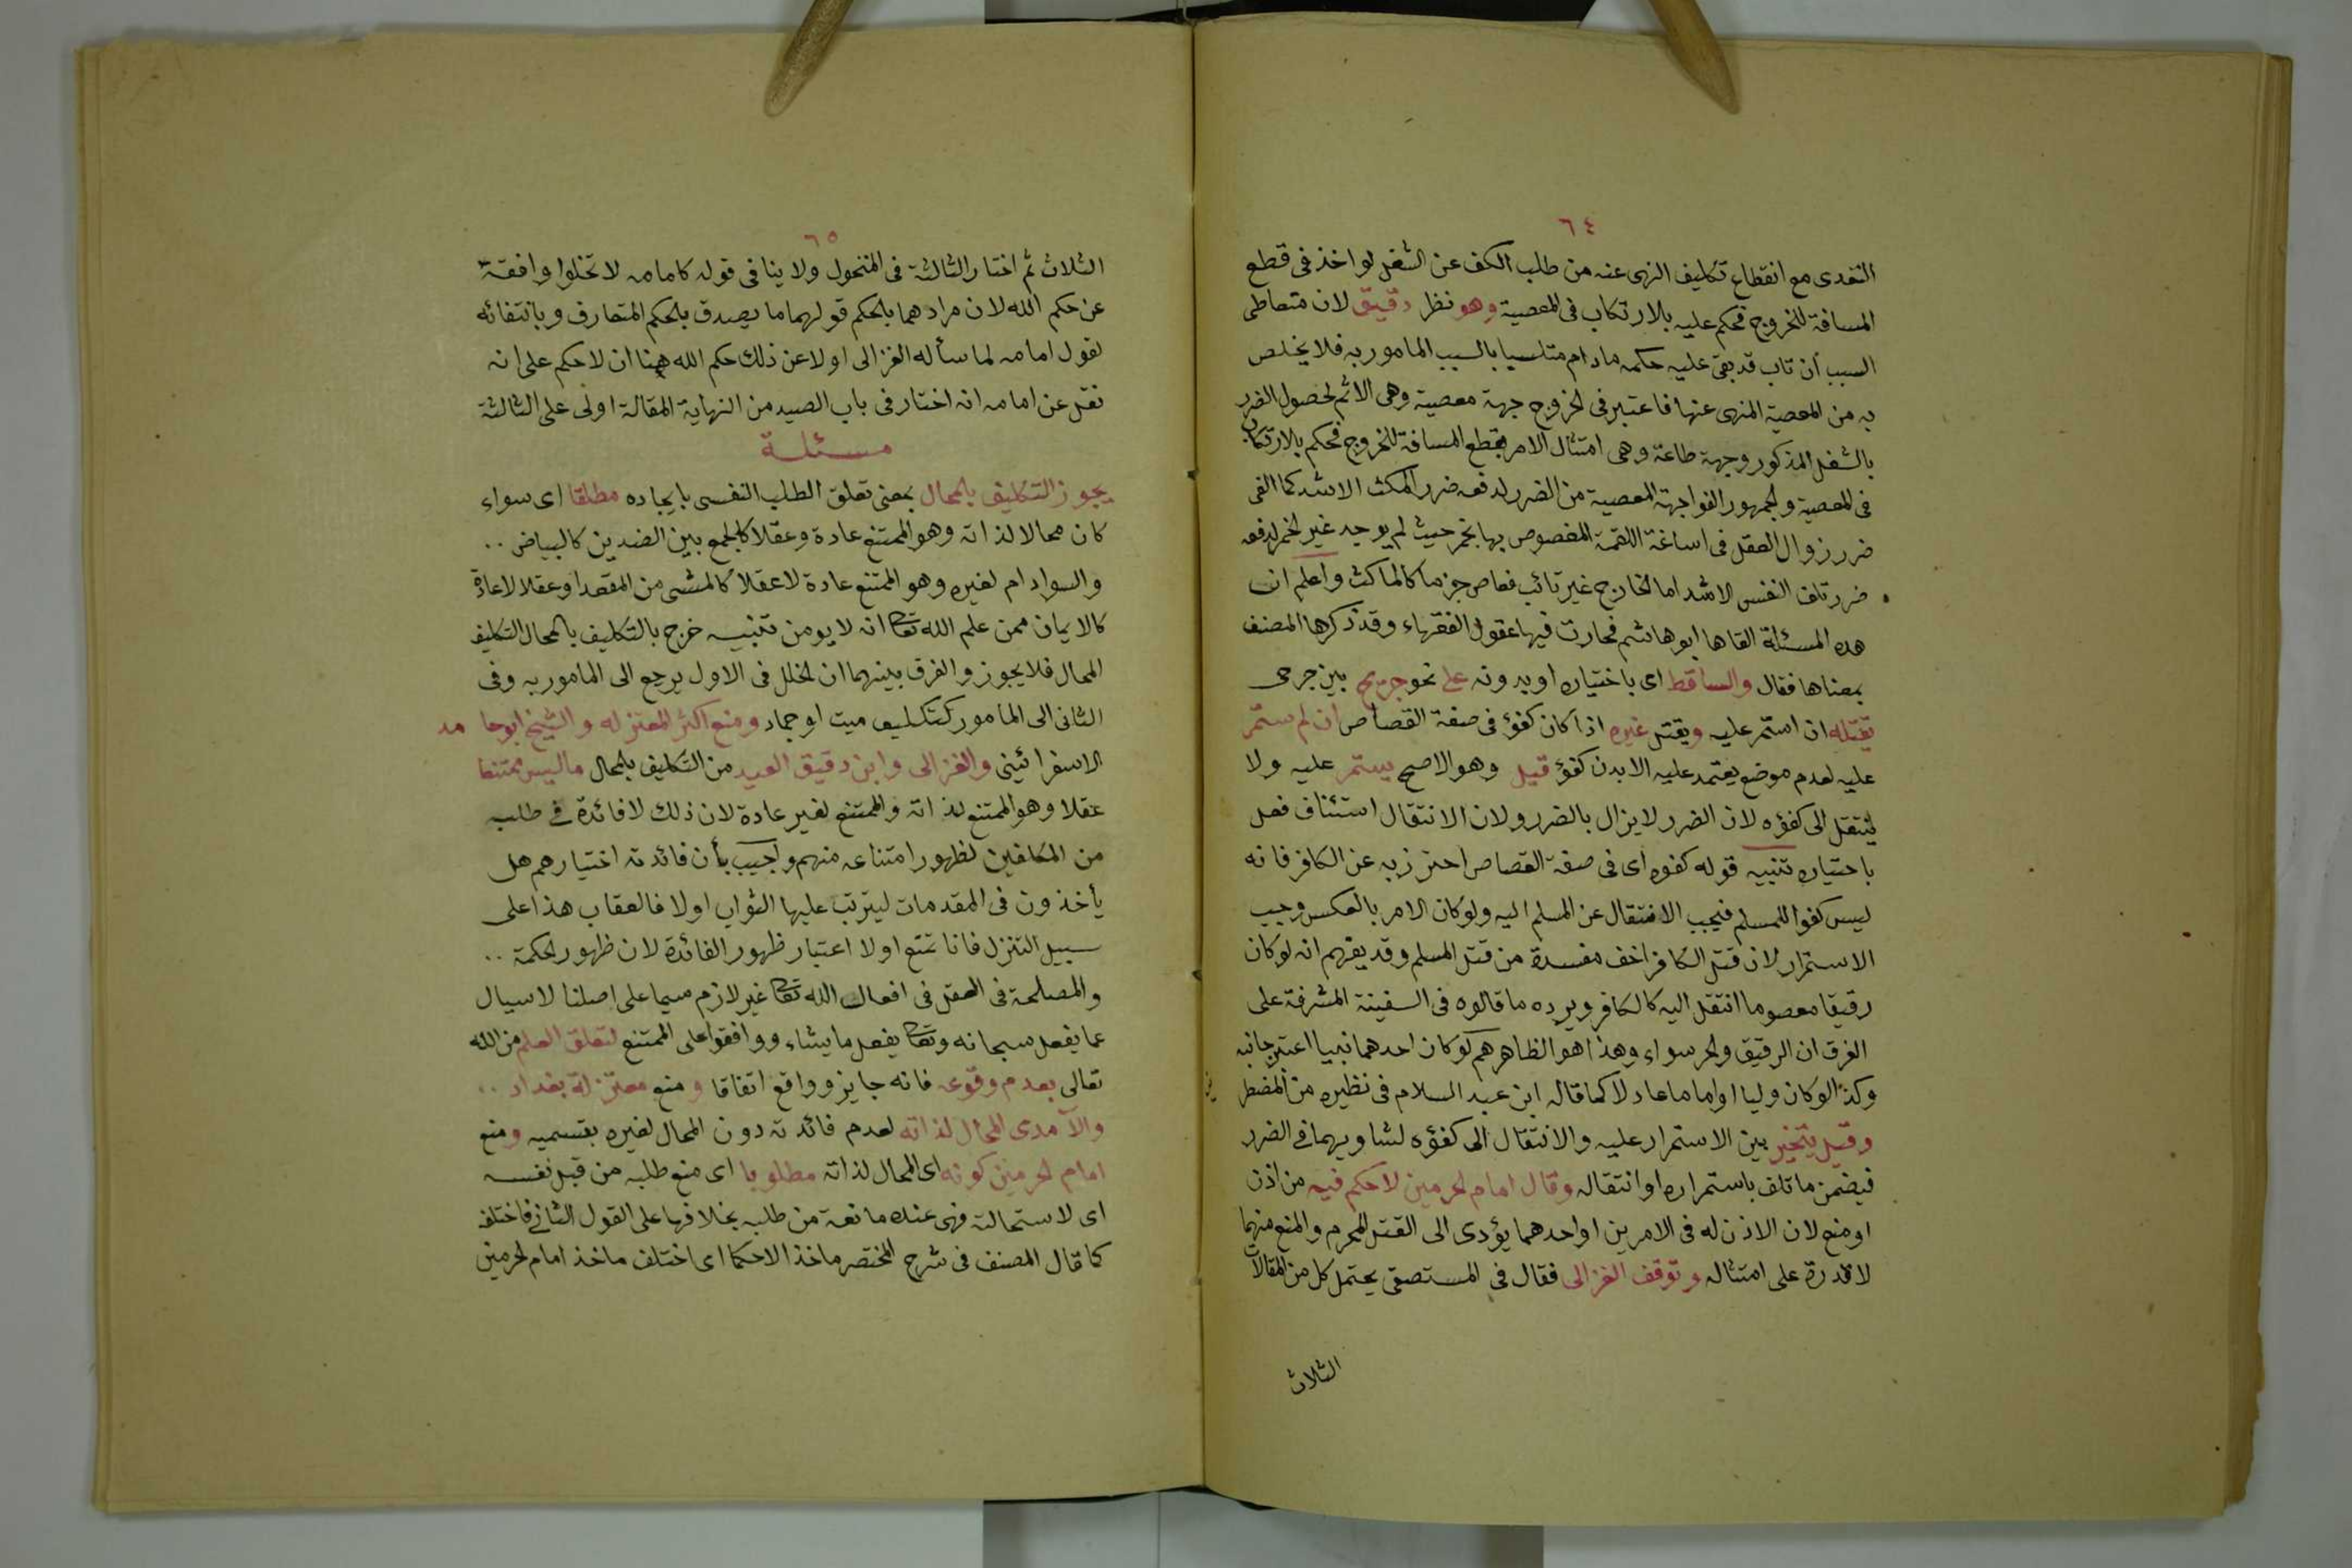 ٦٤
التعدى مع انقطاع تكليف النهى عنه من طلب الكف عن الشغل لو اخذ فى قطع
المسافة للخروج فحكم عليه بالارتكاب فى المعصية وهو نظر دقيق لان متعاطى
السبب ان تاب قد بقى عليه حكمه مادام متلبسا بالسبب المامور به فلا يخلص
به من المعصية المنهى عنها فاعتبر فى الخروج جهة معصية وهى الاثم لحصول الضرر
بالشغل المذكور وجهة طاعة وهى امتثال الامر بقطع المسافة للخروج فحكم بالارتكاب
فى المعصية والجمهور الغوا جهة المعصية من الضرر لدفعه ضرر المكث الاشد كما الغى
ضرر زوال العقل فى اساغة اللقمة المغصوص بها بخمر حيث لم يوجد غير الخمر لدفعه
ضرر تلف النفس الاشد اما الخارج غير تائب فعاص جزما كالماكث واعلم ان
هذه المسئلة القاها ابو هاشم فحارت فيها عقول الفقهاء وقد ذكرها المصنف
بمعناها فقال والساقط اى باختياره او بدونه على نحو جريح بين جرحى
يقتله ان استمر عليه ويقتل غيره اذا كان كفؤ فى صفة القصاص ان لم يستمر
عليه لعدم موضع يعتمد عليه الا بدن كفؤ قيل وهو الاصح يستمر عليه ولا
ينتقل الى كفؤه لان الضرر لا يزال بالضرر ولان الانتقال استئناف فعل
باختياره تنبيه قوله كفوه اى فى صفة القصاص احترز به عن الكافر فانه
ليس كفوا للمسلم فيجب الانتقال عن المسلم اليه ولو كان الامر بالعكس وجب
الاستمرار لان قتل الكافر اخف مفسدة من قتل المسلم وقد يفهم انه لو كان
رقيقا معصوما انتقل اليه كالكافر ويرده ما قالوه فى السفينة المشرفة على
الغرق ان الرقيق والحر سواء وهذا هو الظاهر هم لو كان احدهما نبيا اعتبر جانبه
وكذا لو كان وليا او اماما عادلا كما قاله ابن عبد السلام فى نظيره من المضطر
وقيل يتخير بين الاستمرار عليه والانتقال الى كفؤه لتساويهما فى الضرر
فيضمن ما تلف باستمراره او انتقاله وقال امام الحرمين لا حكم فيه من اذن
او منع لان الاذن له فى الامرين او احدهما يؤدى الى القتل المحرم والمنع منهما
لا قدرة على امتثاله وتوقف الغزالى فقال فى المستصفى يحتمل كل من المقالات
الثلاث
٦٥
الثلاث ثم اختار الثالثة فى المنخول ولا ينافى قوله كامامه لا تخلوا واقعة
عن حكم الله لان مرادهما بالحكم قولهما ما يصدق بالحكم المتعارف وبانتفائه
لقول امامه لما سأله الغزالى اولا عن ذلك حكم الله هنا ان لا حكم على انه
نقل عن امامه انه اختار فى باب الصيد من النهاية المقالة اولى على الثالثة
مسئلة
يجوز التكليف بالمحال بمعنى تعلق الطلب النفسى بايجاده مطلقا اى سواء
كان محالا لذاته وهو الممتنع عادة وعقلا كالجمع بين الضدين كالبياض ..
والسواد ام لغيره وهو الممتنع عادة لا عقلا كالمشى من المقعد او عقلا لا عادة
كالايمان ممن علم الله تعالى انه لا يومن تنبيه خرج بالتكليف بالمحال التكليف
المحال فلا يجوز والفرق بينهما ان الخلل فى الاول يرجع الى المامور به وفى
الثانى الى المامور كتكليف ميت او جماد ومنع اكثر المعتزله والشيخ ابو حامد
الاسفرائينى والغزالى وابن دقيق العيد من التكليف بالمحال ما ليس ممتنعا
عقلا وهو الممتنع لذاته والممتنع لغير عادة لان ذلك لا فائدة فى طلبه
من المكلفين لظهور امتناعه منهم واجيب بأن فائدته اختيارهم هل
يأخذون فى المقدمات ليترتب عليها الثواب اولا فالعقاب هذا على
سبيل التنزل فانا نمنع اولا اعتبار ظهور الفائدة لان ظهور الحكمة ..
والمصلحة فى العقل فى افعال الله تعالى غير لازم سيما على اصلنا لا سيال
عما يفعل سبحانه وتعالى يفعل ما يشاء ووافقوا على الممتنع لتعلق العلم من الله
تعالى بعدم وقوعه فانه جايز وواقع اتفاقا ومنع معتزلة بغداد ..
والآمدى المحال لذاته لعدم فائدته دون المحال لغيره بقسميه ومنع
امام الحرمين كونه اى المحال لذاته مطلوبا اى منع طلبه من قبل نفسه
اى لاستحالته فهى عنده مانعة من طلبه بخلافها على القول الثانى فاختلف
كما قال المصنف فى شرح المختصر ماخذ الاحكما اى اختلف ماخذ امام الحرمين